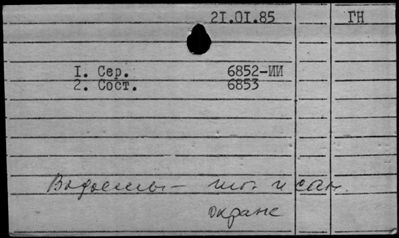 21.01.85 ГН
1. Сер. 6852-ИИ
2. Сост. 6853
Водоемы - и сан.
охране